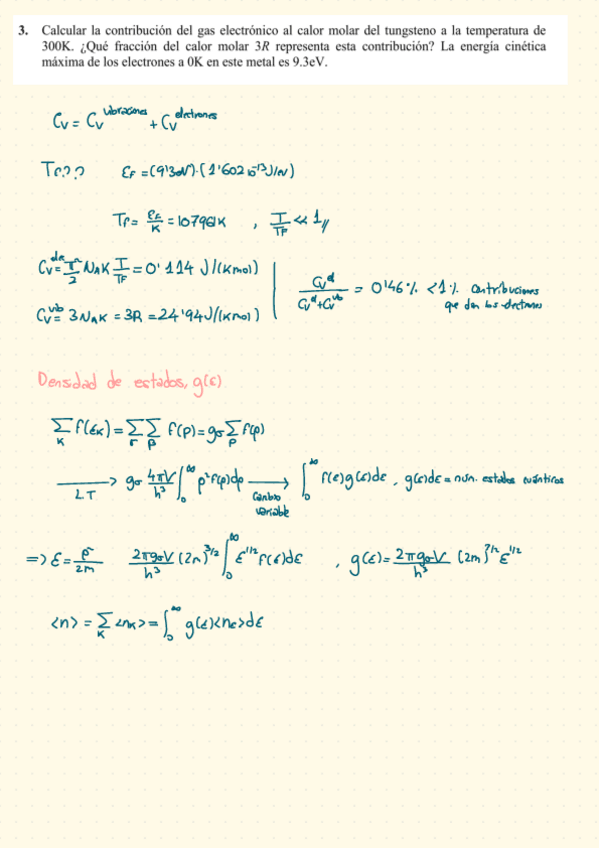 3. Calcular la contribución del gas electrónico al calor molar del tungsteno a la temperatura de
300K. ¿Qué fracción del calor molar 3R representa esta contribución? La energía cinética
máxima de los electrones a 0K en este metal es 9.3eV.
Cv = Cv^vibraciones + Cv^electrones
TF?? εF = (9'3eV)·(1'602 10^-13 J/eV)
TF = εF/K = 107961K , T/TF << 1//
Cv^el = π²/2 NAK T/TF = 0'114 J/(Kmol)
Cv^vib = 3NAK = 3R = 24'94 J/(Kmol)
Cv^el/(Cv^el + Cv^vib) = 0'46% < 1% contribuciones
que dan los electrones
Densidad de estados, g(ε)
Σ_K f(εK) = Σ_σ Σ_p f(p) = gσ Σ_p f(p)
→ LT gσ 4πV/h³ ∫_0^∞ p² f(p)dp → Cambio variable ∫_0^∞ f(ε)g(ε)dε , g(ε)dε = nún. estados cuánticos
=> ε = p²/2m 2πgσV/h³ (2m)^3/2 ∫_0^∞ ε^1/2 f(ε)dε , g(ε) = 2πgσV/h³ (2m)^3/2 ε^1/2
<n> = Σ_K <nK> = ∫_0^∞ g(ε)<nε>dε